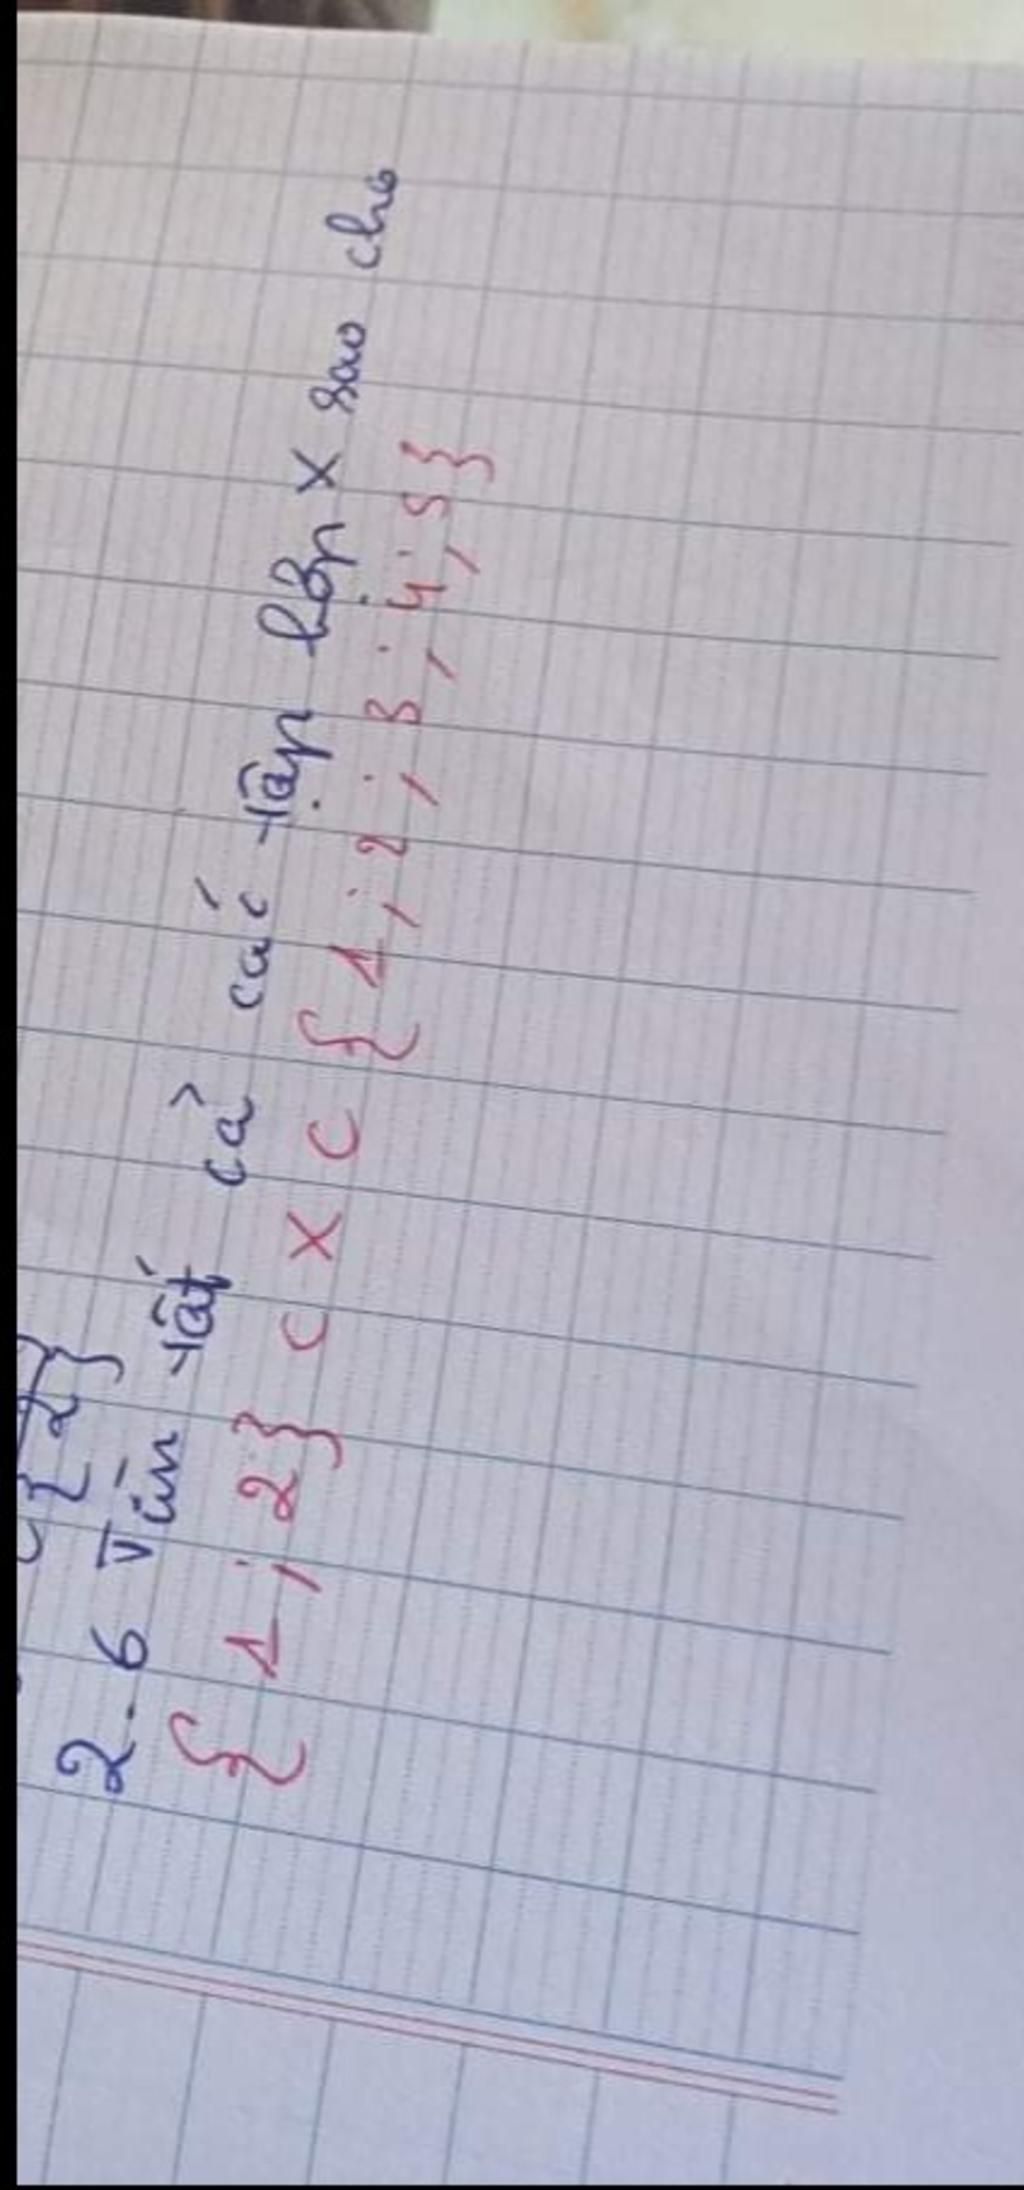 {2}
2.6 Tìm tất cả các tập hợp X sao cho
{1;2} ⊂ X ⊂ {1;2;3;4;5}